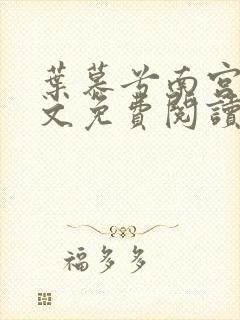 葉慕兮南宮
文免費閱讀
福多多